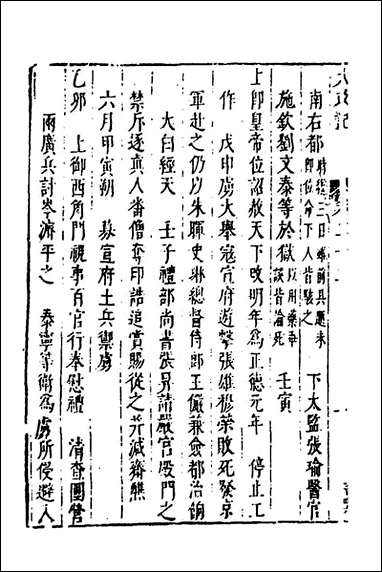 南右都
下太監張瑜醫官
施欽劉文泰等於獄 壬寅
上即皇帝位詔赦天下改明年為正德元年 停止工
作 戊申虜大舉寇宣府遊擊張雄穆榮敗死發京
軍赴之仍以朱暉史琳總督侍郎王儼兼僉都治餉
太白經天 壬子禮部尚書張昇請嚴官殿門之
禁斥逐真人番僧奪印誥追賞賜從之并減齋醮
六月甲寅朔 募宣府土兵禦虜
乙卯 上御西角門視事百官行奉慰禮 清查團營
兩廣兵討岑濬平之 泰寧等衛為虜所侵避入